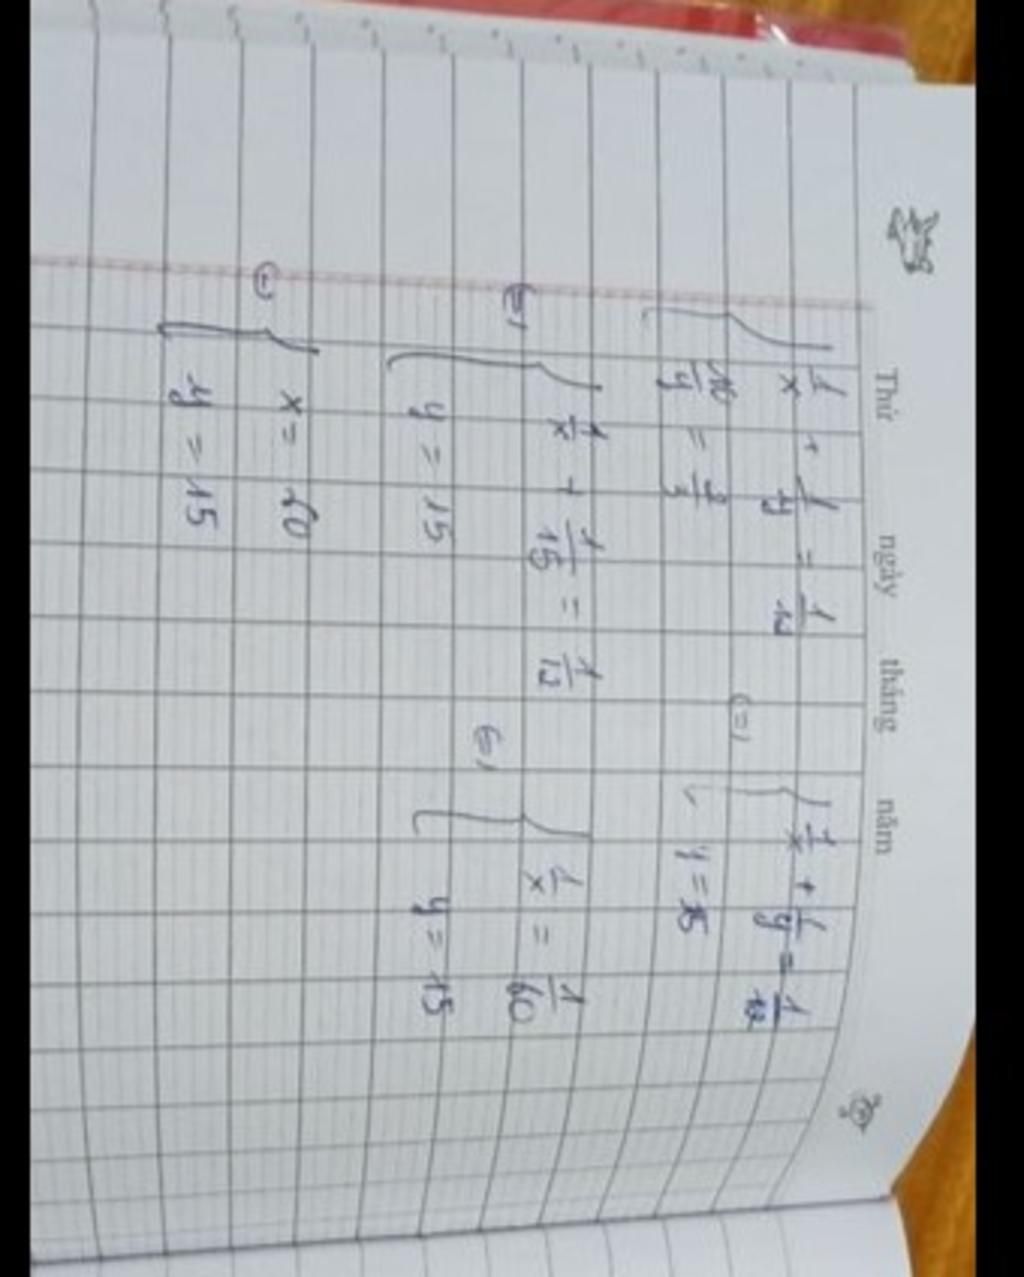 Thứ ngày tháng năm
{ 1/x + 1/y = 1/12
10/y = 2/3
<=> { 1/x + 1/y = 1/12
y = 15
<=> { 1/x + 1/15 = 1/12
y = 15
<=> { 1/x = 1/60
y = 15
<=> { x = 60
y = 15